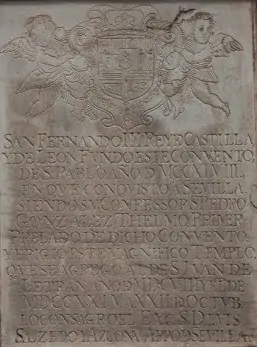 SAN FERNANDO III REY DE CASTILLA
Y DE LEON FUNDO ESTE CONVENTO,
DE S. PABLO AÑO D MCCXLVIII,
EN QVE CONQVISTO A SEVILLA
SIENDO SV CONFESSOR S PEDRO
GONZALEZ THELMO PRIMER
PRELADO DE DICHO CONVENTO
Y ERIGIO ESTE MAGNIFICO TEMPLO,
QVE SE AGREGO AL DE S IVAN DE
LETRAN AÑO D
DE
OCTVB
LO CONSAGRO EL EXC S D LVIS
SALZEDO Y AZCONA ARPO D SEVILLA